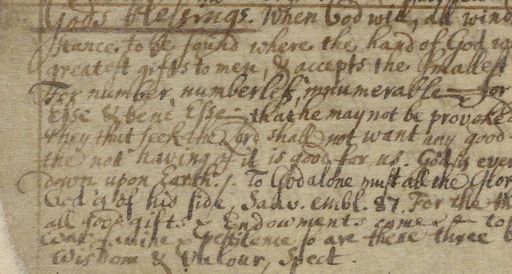 Gods blessings. When God will, all wind
stance to be found where the hand of God is
greatest gifts to men, & accepts the smallest
For number numberless, innumerable for
Esse & bene Esse that he may not be provoked
they that seek the Lord shall not want any good
the not having of it is good for us. God is ever
down upon Earth. To God alone must all the Glor
God is of his side, Sauv. embl. 87. For the
all good gifts & Endowments came & to
War, famine & Pestilence so are there three b
Wisdom & Valour, Spect.